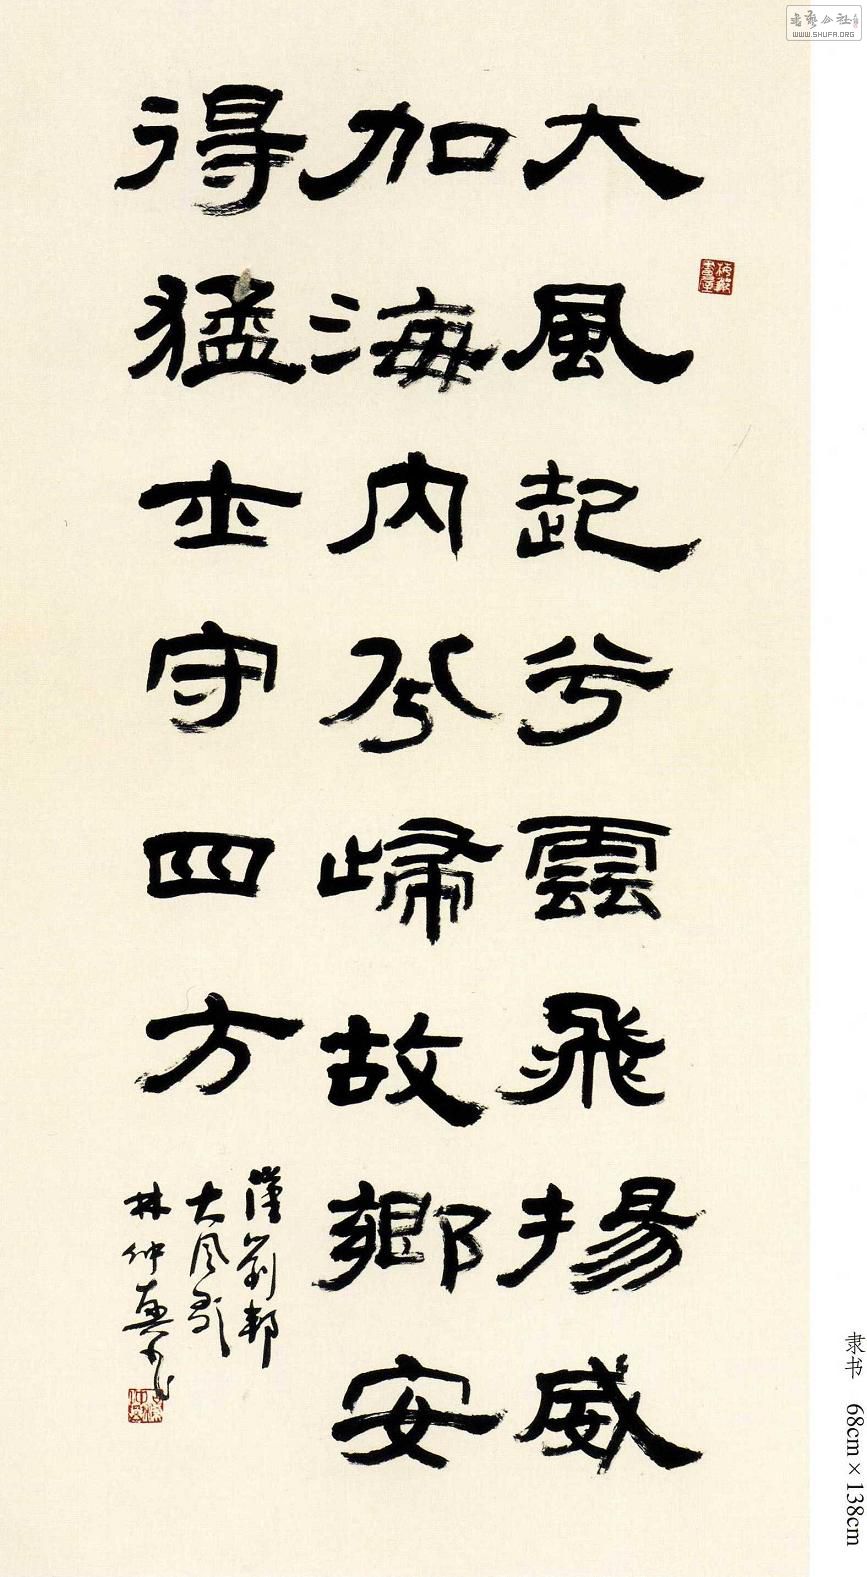 大風起兮雲飛揚威
加海内兮歸故鄉安
得猛士守四方
漢劉邦
大风歌
林仲興
隶书 68cm×138cm
书艺公社
WWW.SHUFA.ORG